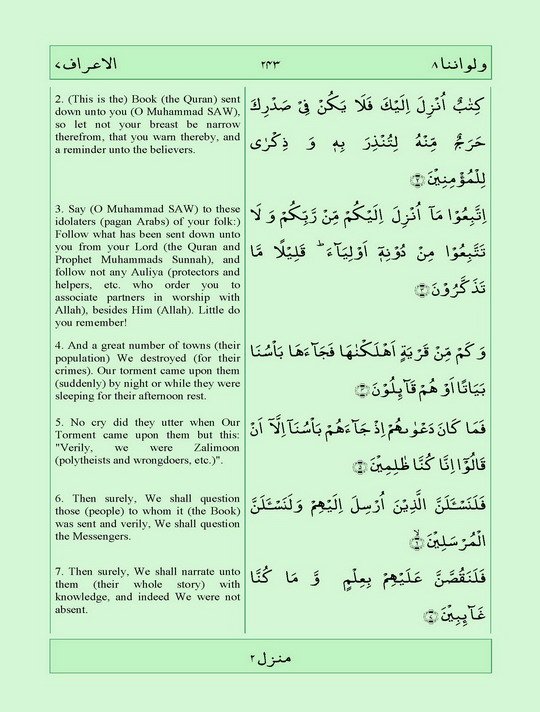 الاعراف ٧
٢٤٣
ولواننا ٨
2. (This is the) Book (the Quran) sent
down unto you (O Muhammad SAW),
so let not your breast be narrow
therefrom, that you warn thereby, and
a reminder unto the believers.
كِتٰبٌ اُنْزِلَ اِلَيْكَ فَلَا يَكُنْ فِيْ صَدْرِكَ
حَرَجٌ مِّنْهُ لِتُنْذِرَ بِهٖ وَ ذِكْرٰى
لِلْمُؤْمِنِيْنَ ۝٢
3. Say (O Muhammad SAW) to these
idolaters (pagan Arabs) of your folk:)
Follow what has been sent down unto
you from your Lord (the Quran and
Prophet Muhammads Sunnah), and
follow not any Auliya (protectors and
helpers, etc. who order you to
associate partners in worship with
Allah), besides Him (Allah). Little do
you remember!
اِتَّبِعُوْا مَاۤ اُنْزِلَ اِلَيْكُمْ مِّنْ رَّبِّكُمْ وَ لَا
تَتَّبِعُوْا مِنْ دُوْنِهٖۤ اَوْلِيَآءَ ؕ قَلِيْلًا مَّا
تَذَكَّرُوْنَ ۝٣
4. And a great number of towns (their
population) We destroyed (for their
crimes). Our torment came upon them
(suddenly) by night or while they were
sleeping for their afternoon rest.
وَ كَمْ مِّنْ قَرْيَةٍ اَهْلَكْنٰهَا فَجَآءَهَا بَاْسُنَا
بَيَاتًا اَوْ هُمْ قَآئِلُوْنَ ۝٤
5. No cry did they utter when Our
Torment came upon them but this:
"Verily, we were Zalimoon
(polytheists and wrongdoers, etc.)".
فَمَا كَانَ دَعْوٰىهُمْ اِذْ جَآءَهُمْ بَاْسُنَاۤ اِلَّاۤ اَنْ
قَالُوْۤا اِنَّا كُنَّا ظٰلِمِيْنَ ۝٥
6. Then surely, We shall question
those (people) to whom it (the Book)
was sent and verily, We shall question
the Messengers.
فَلَنَسْـَٔلَنَّ الَّذِيْنَ اُرْسِلَ اِلَيْهِمْ وَلَنَسْـَٔلَنَّ
الْمُرْسَلِيْنَ ۙ۝٦
7. Then surely, We shall narrate unto
them (their whole story) with
knowledge, and indeed We were not
absent.
فَلَنَقُصَّنَّ عَلَيْهِمْ بِعِلْمٍ وَّ مَا كُنَّا
غَآئِبِيْنَ ۝٧
منزل ٢